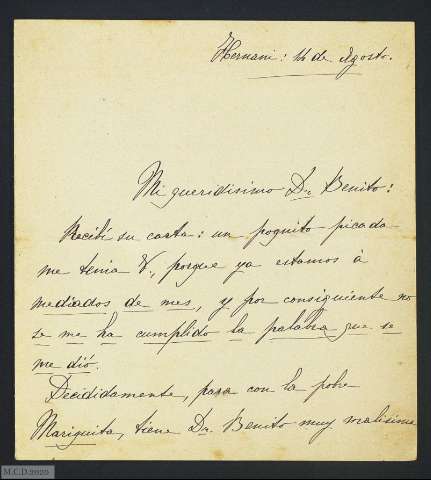 Hernani: 14 de Agosto.
Mi queridisimo Dn Benito:
Recibí su carta: un poquito picada
me tenia V., porque ya estamos à
mediados de mes, y por consiguiente no
se me ha cumplido la palabra que se
me dió.
Decididamente, para con la pobre
Mariquita, tiene Dn Benito muy malisima
M.C.D.2020